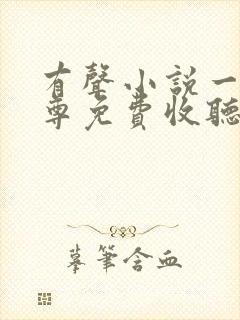 有聲小說一
尊免費收聽
摹筆含血